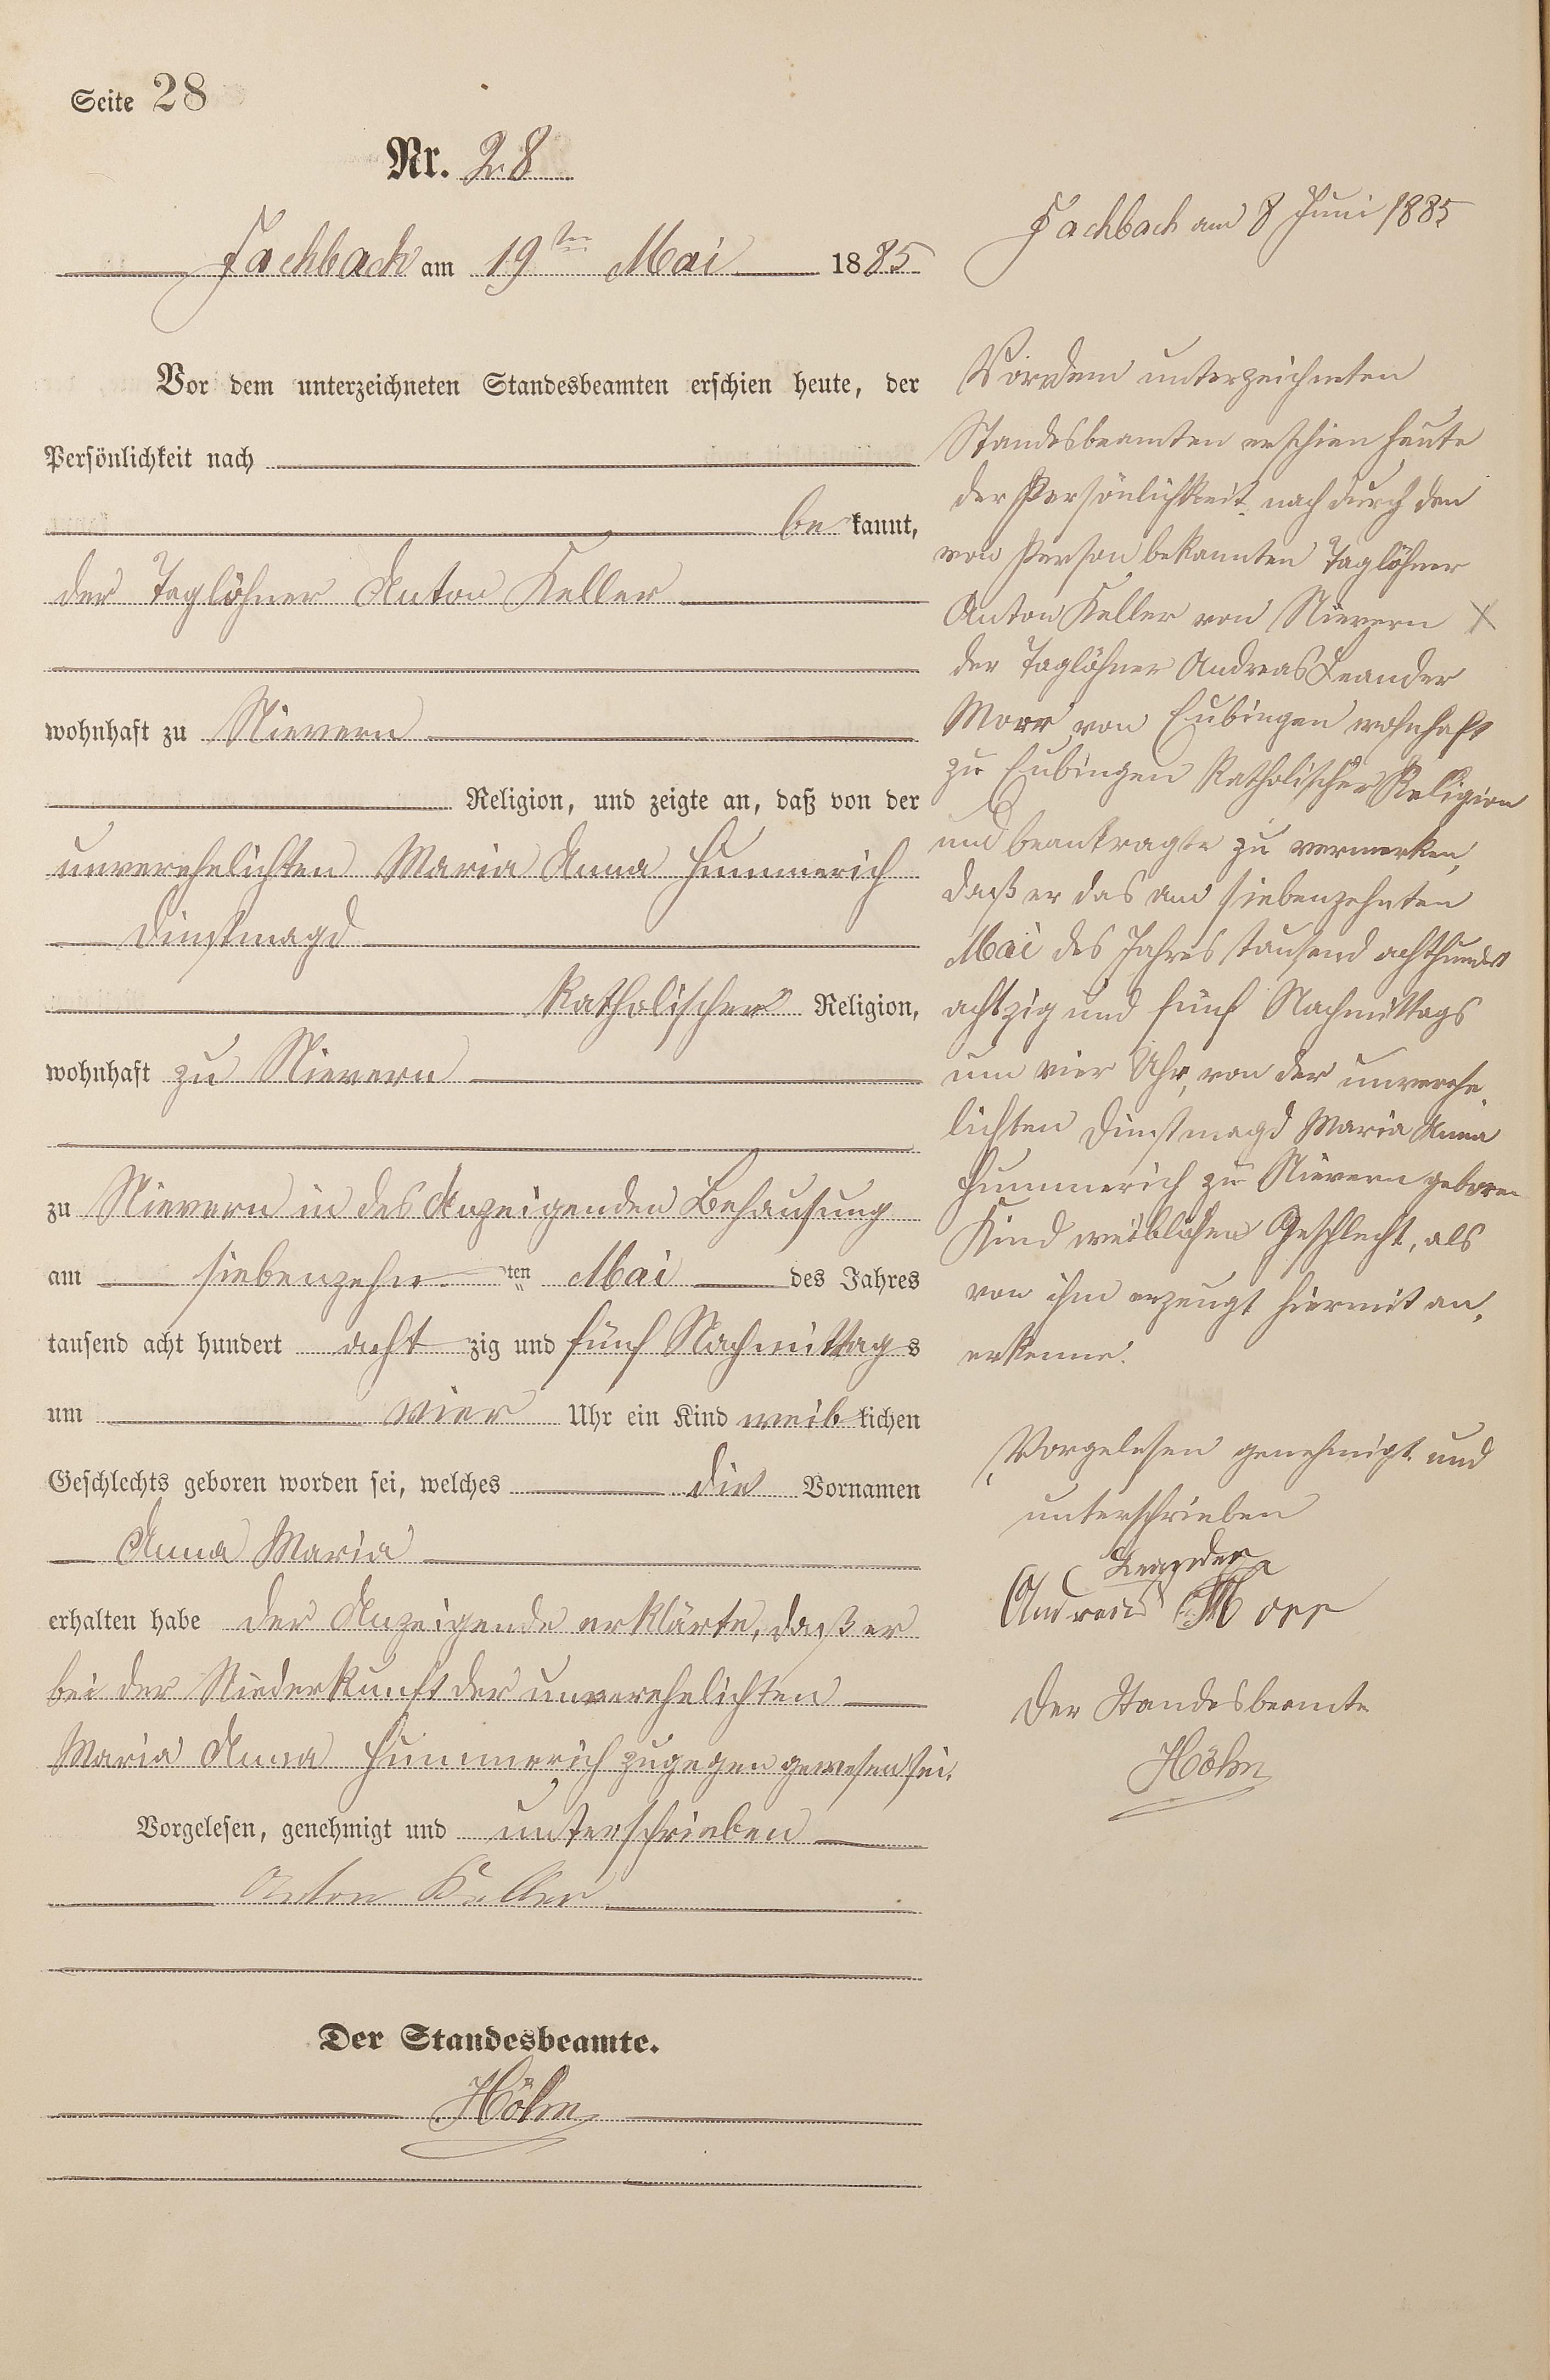 Seite 28
Nr. 28
Fachbach am 19ten Mai 1885
Vor dem unterzeichneten Standesbeamten erschien heute, der
Persönlichkeit nach
be kannt,
der Taglöhner Anton Keller
wohnhaft zu Nievern
Religion, und zeigte an, daß von der
unverehelichten Maria Anna Hummerich
Dinstmagd
Katholischer Religion,
wohnhaft zu Nievern
zu Nievern in des Anzeigenden Behausung
am siebenzehn ten Mai des Jahres
tausend acht hundert acht zig und fünf Nachmittags
um vier Uhr ein Kind weib lichen
Geschlechts geboren worden sei, welches die Vornamen
Anna Maria
erhalten habe der Anzeigende erklärte, daß er
bei der Niederkunft der unverehelichten
Maria Anna Hummerich zugegen gewesen sei.
Vorgelesen, genehmigt und unterschrieben
Anton Keller
Der Standesbeamte.
Höhn
Fachbach am 8 Juni 1885
Vor dem unterzeichneten
Standesbeamten erschien heute
der Persönlichkeit nach durch den
von Person bekannten Taglöhner
Anton Keller von Nievern X
der Taglöhner Andreas Leander
Morr von Eubingen wohnhaft
zu Eubingen Katholischer Religion
und beantragte zu vermerken,
daß er das am siebenzehnten
Mai des Jahres tausend achthundert
achtzig und fünf Nachmittags
um vier Uhr, von der unverehe
lichten Dinstmagd Maria Anna
Hummerich zu Nievern geboren
Kind weiblichen Geschlecht, als
von ihm erzeugt hiermit an,
erkenne.
Vorgelesen genehmigt und
unterschrieben
Leander
Andreas Morr
Der Standesbeamte
Höhn